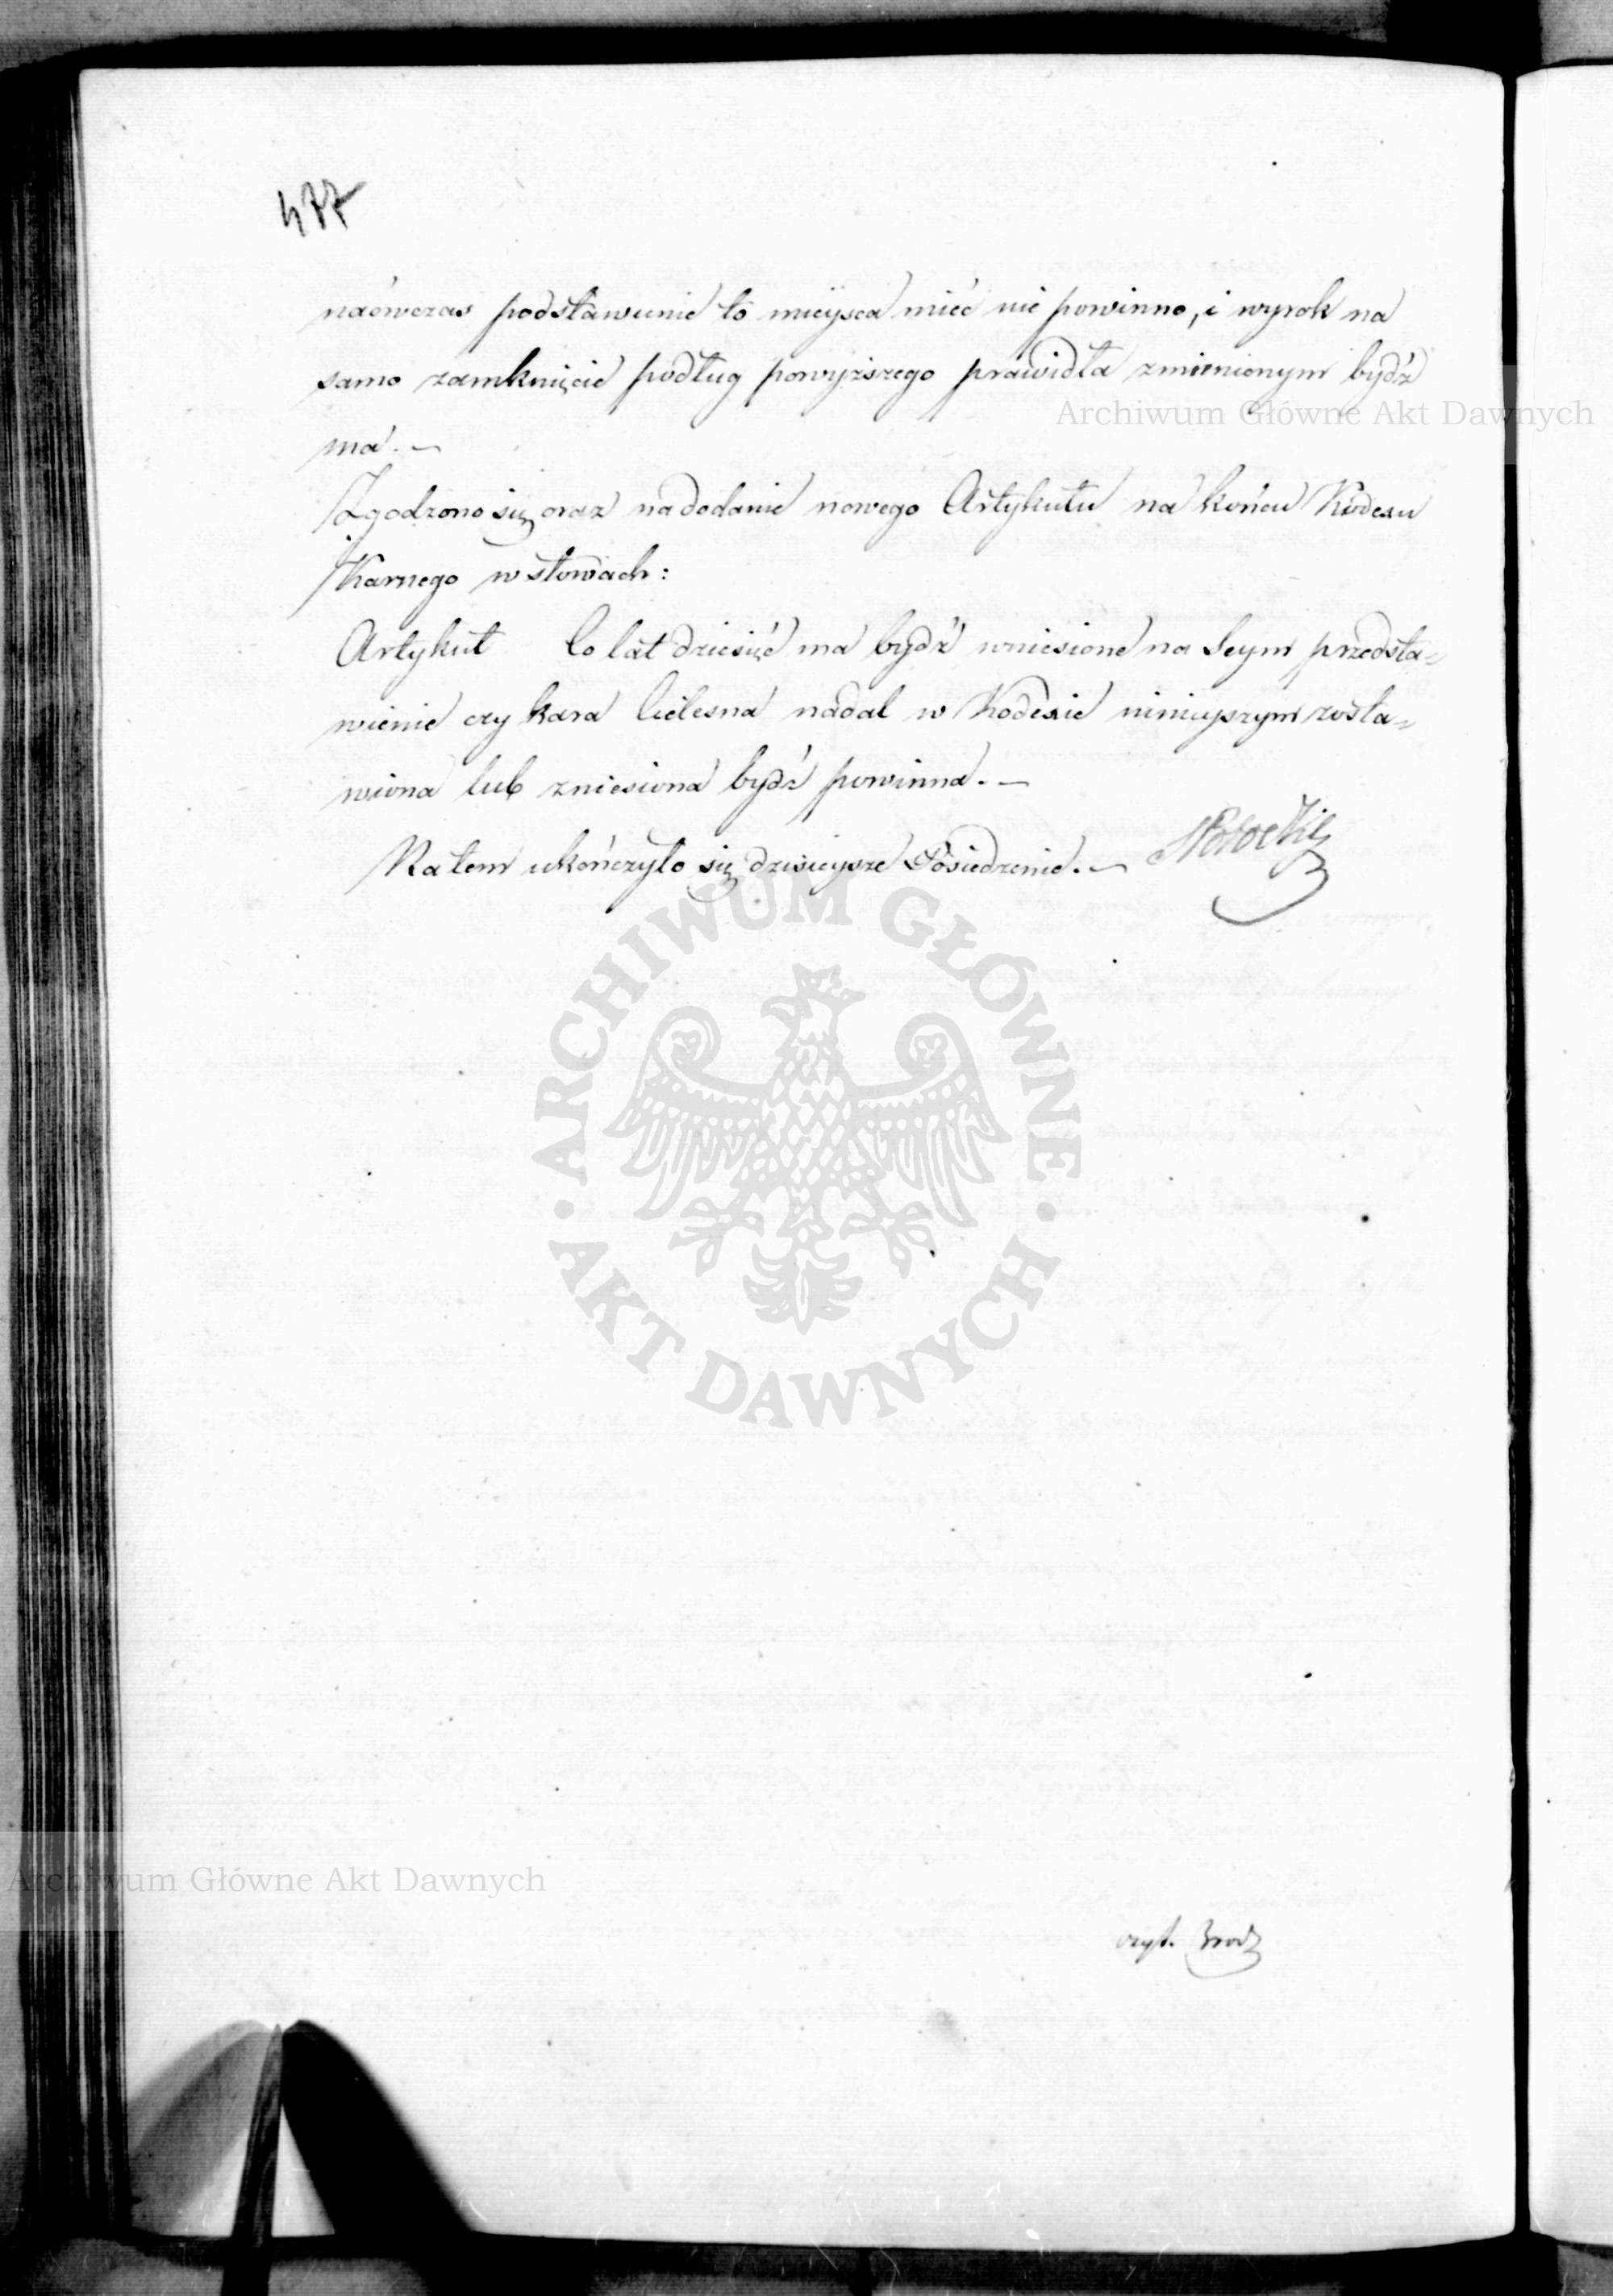 477
naówczas podstawienie to mieysca mieć nie powinno, i wyrok na
samo zamknięcie podług powyższego prawidła zmienionym bydź
Archiwum Główne Akt Dawnych
ma. —
Zgodzono się oraz na dodanie nowego Artykułu na końcu Kodexu
Karnego w słowach:
Artykuł Co lat dziesięć ma bydź wniesione na Seym przedsta=
wienie czy kara Cielesna nadal w Kodexie ninieyszym zosta=
wiona lub zniesiona bydź powinna. —
Na tem ukończyło się dzisieysze Posiedzenie. — Potocki
ARCHIWUM GŁÓWNE
AKT DAWNYCH
Archiwum Główne Akt Dawnych
czyt.